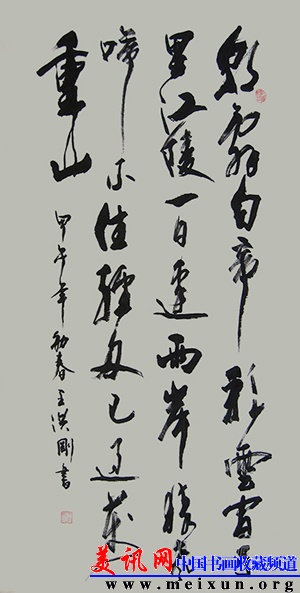 朝辞白帝彩雲間千
里江陵一日還兩岸猿聲
啼不住輕舟已過萬
重山
甲午年初春王洪剛書
美讯网
中国书画收藏频道
www.meixun.org